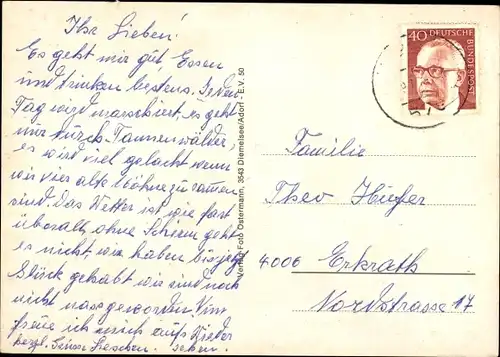 Ihr Lieben!
Es geht mir gut, Essen
und trinken bestens. Jeden
Tag wird marschiert, es geht
nur durch Tannenwälder,
es wird viel gelacht wenn
wir vier alte zusammen
sind. Das Wetter ist wie fast
überall, ohne Schirm geht
es nicht, wir haben bis jetzt
Glück gehabt wir sind noch
nicht nass geworden. Nun
freue ich mich aufs Wieder
sehen.
herzl. Grüsse
Verlag Foto Ostermann, 3543 Diemelsee/Adorf - E.V. 50
40 DEUTSCHE BUNDESPOST
Familie
Theo Hüfer
4006 Erkrath
Nordstrasse 17